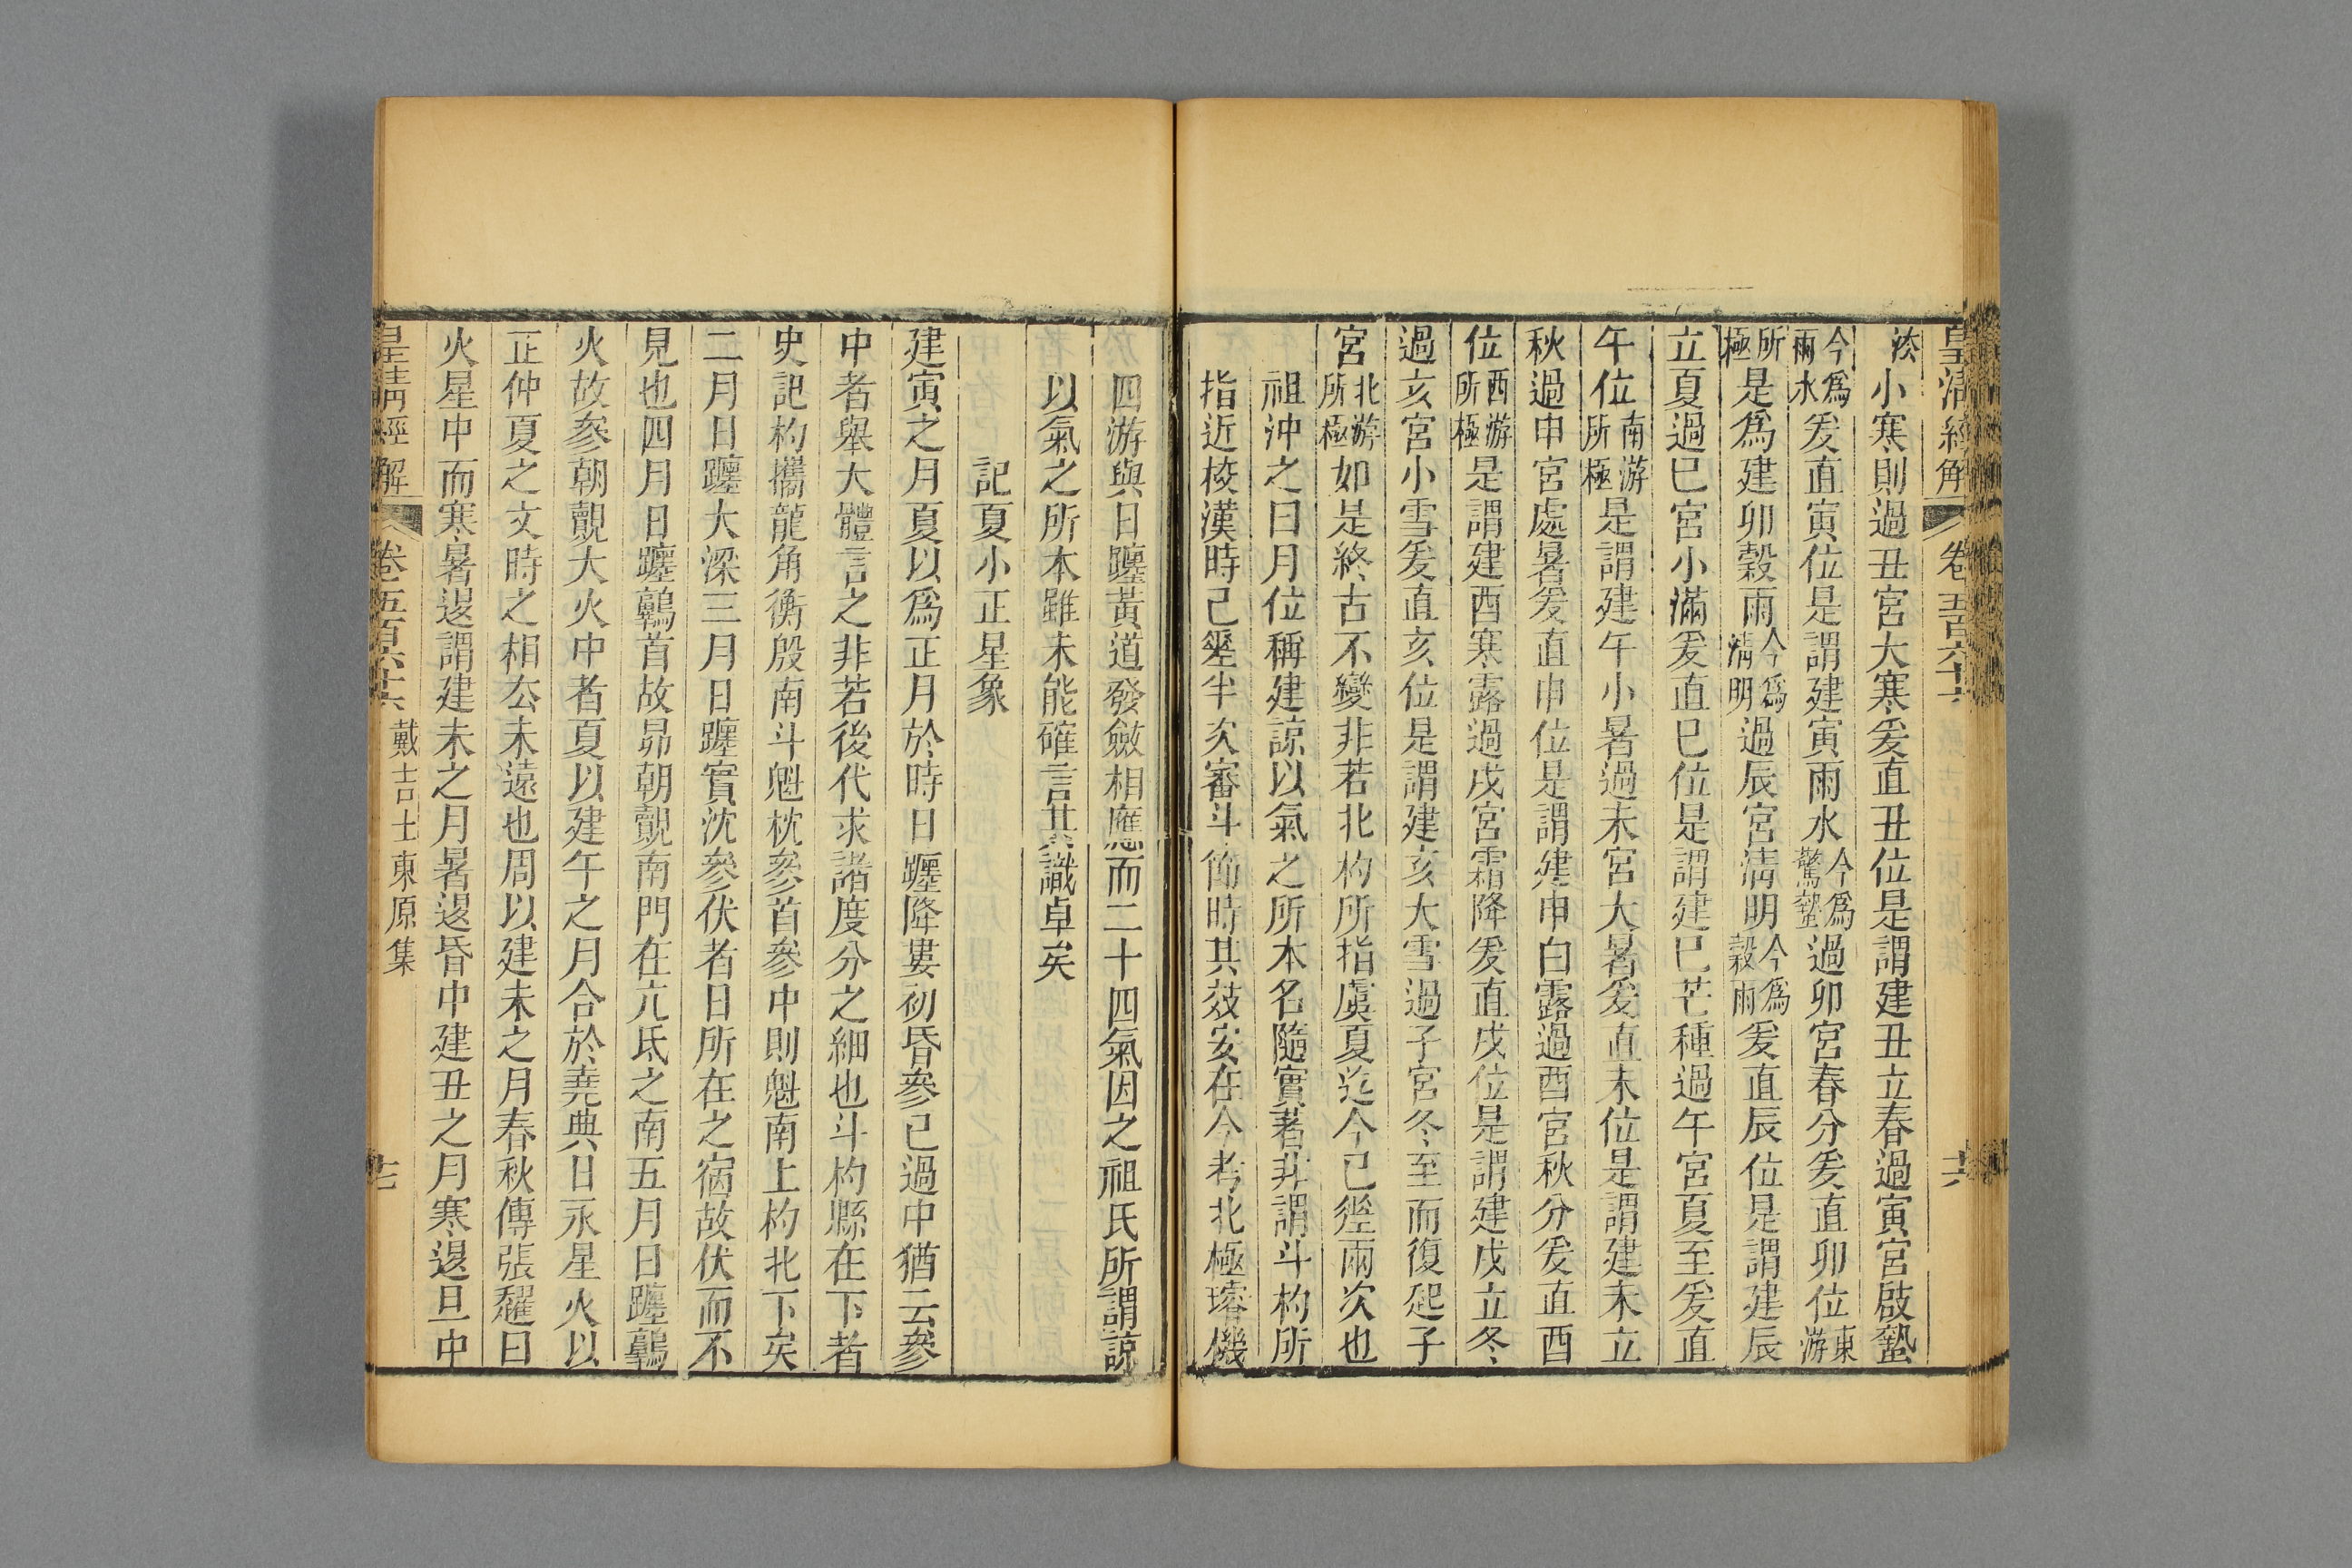 皇清經解 卷五百六十六 十六
次小寒則過丑宮大寒爰直丑位是謂建丑立春過寅宮啟蟄
今爲雨水爰直寅位是謂建寅雨水今爲驚蟄過卯宮春分爰直卯位東游
所極是爲建卯穀雨今爲淸明過辰宮淸明今爲穀雨爰直辰位是謂建辰
立夏過巳宮小滿爰直巳位是謂建巳芒種過午宮夏至爰直
午位南游所極是謂建午小暑過未宮大暑爰直未位是謂建未立
秋過申宮處暑爰直申位是謂建申白露過酉宮秋分爰直酉
位西游所極是謂建酉寒露過戌宮霜降爰直戌位是謂建戌立冬
過亥宮小雪爰直亥位是謂建亥大雪過子宮冬至而復起子
宮北游所極如是終古不變非若北杓所指虞夏迄今已差兩次也
祖沖之曰月位稱建諒以氣之所本名隨實著非謂斗杓所
指近校漢時已差半次審斗節時其效安在今考北極璿機
四游與日躔黃道發斂相應而二十四氣因之祖氏所謂諒
以氣之所本雖未能確言其識卓矣
記夏小正星象
建寅之月夏以爲正月於時日躔降婁初昏參已過中猶云參
中者舉大體言之非若後代求諸度分之細也斗杓縣在下者
史記杓攜龍角衡殷南斗魁枕參首參中則魁南上杓北下矣
二月日躔大梁三月日躔實沈參伏者日所在之宿故伏而不
見也四月日躔鶉首故昴朝覿南門在亢氐之南五月日躔鶉
火故參朝覿大火中者夏以建午之月合於堯典日永星火以
正仲夏之文時之相公未遠也周以建未之月春秋傳張趯曰
火星中而寒暑退謂建未之月暑退昏中建丑之月寒退旦中
皇淸經解 卷五百六十六 戴吉士東原集 十七